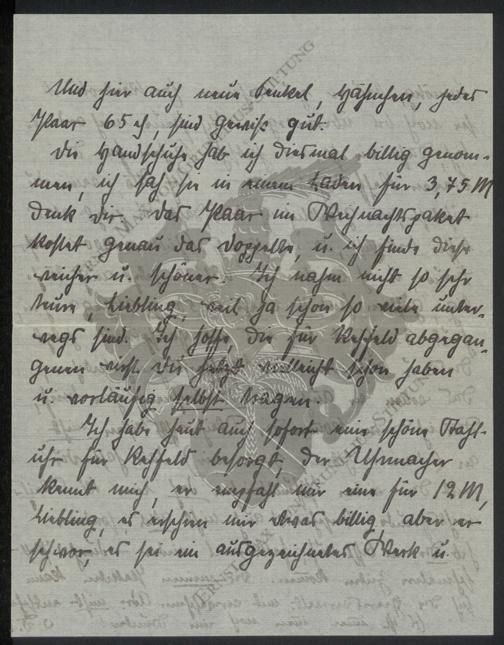 Und hier auch neue Senkel, Hähnchen, jedes
Paar 65 ₰, sind gewiß gut.
Die Handschuh hab ich diesmal billig genom-
men, ich sah sie in einem Laden für 3,75 M
denk dir. das Paar im Weihnachtspaket
kostet genau das doppelte, u. ich finde diese
weicher u. schöner. Ich nahm nicht so sehr
teure, Liebling, weil ja schon so viele unter-
wegs sind. Ich hoffe, die für Rehfeld abgegan-
genen wirst Du jetzt vielleicht schon haben
u. vorläufig selbst tragen.
Ich habe heut auch sofort eine schöne Stahl-
uhr für Rehfeld besorgt, der Uhrmacher
kennt mich, er empfahl mir eine für 12 M,
Liebling, es erschien mir etwas billig, aber er
schwor, es sei ein ausgezeichnetes Werk u.